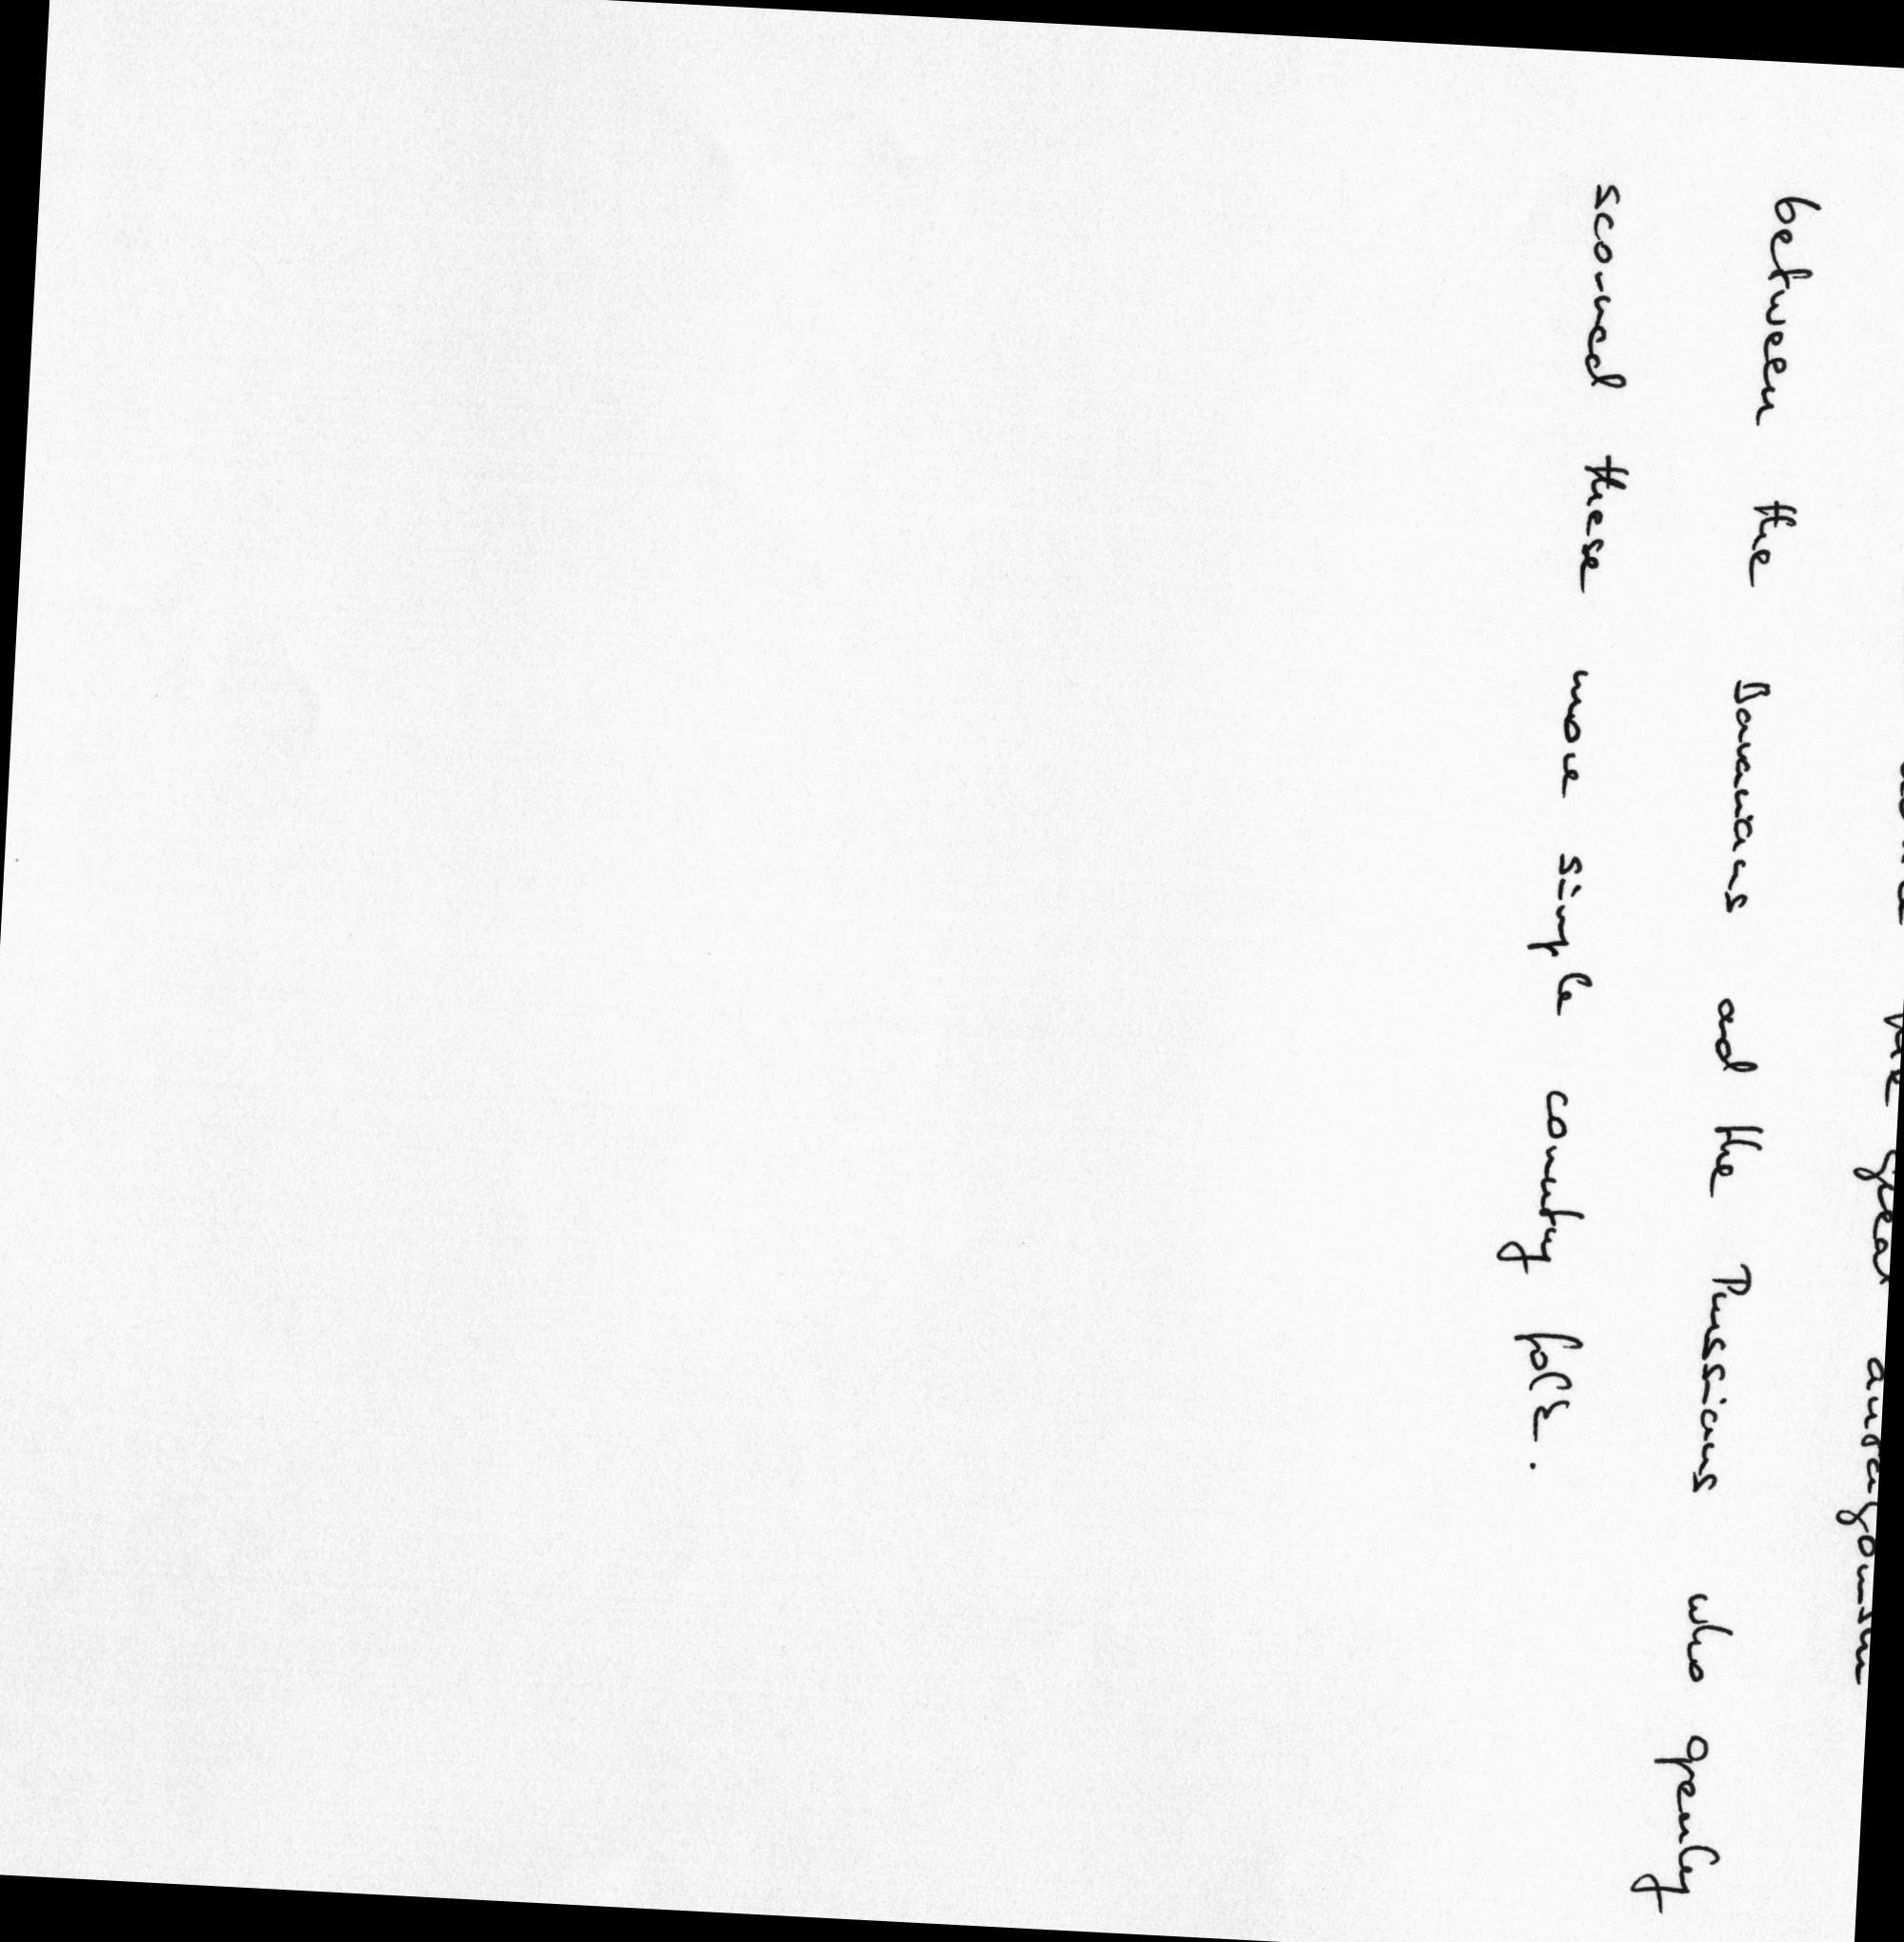 the great antagonism
between the Bavarians and the Prussians who openly
scorned these more simple country folk.